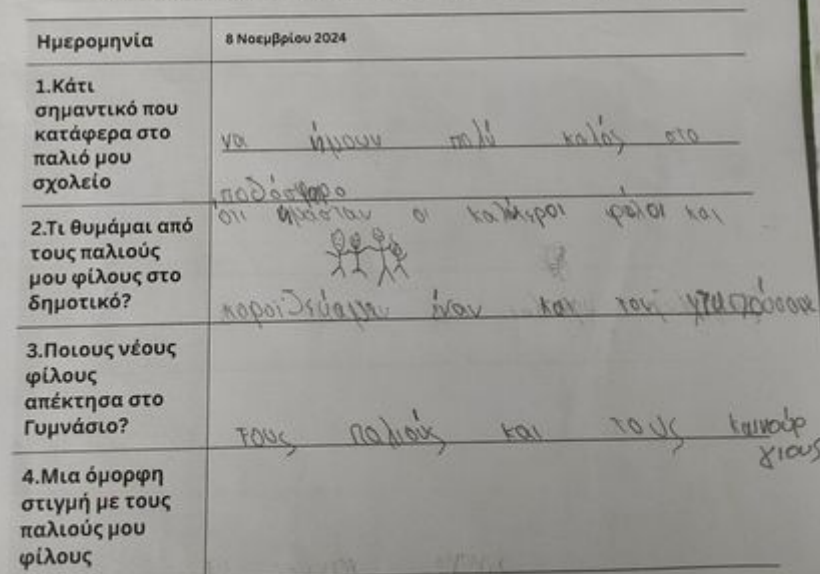 Ημερομηνία
8 Νοεμβρίου 2024
1.Κάτι
σημαντικό που
κατάφερα στο
παλιό μου
σχολείο
να ήμουν πολύ καλός στο
ποδόσφαρο
2.Τι θυμάμαι από
τους παλιούς
μου φίλους στο
δημοτικό?
ότι ήμασταν οι καλύτεροι φίλοι και
έναν και τον
3.Ποιους νέους
φίλους
απέκτησα στο
Γυμνάσιο?
τους παλιούς και τους καινούρ
γιους
4.Μια όμορφη
στιγμή με τους
παλιούς μου
φίλους